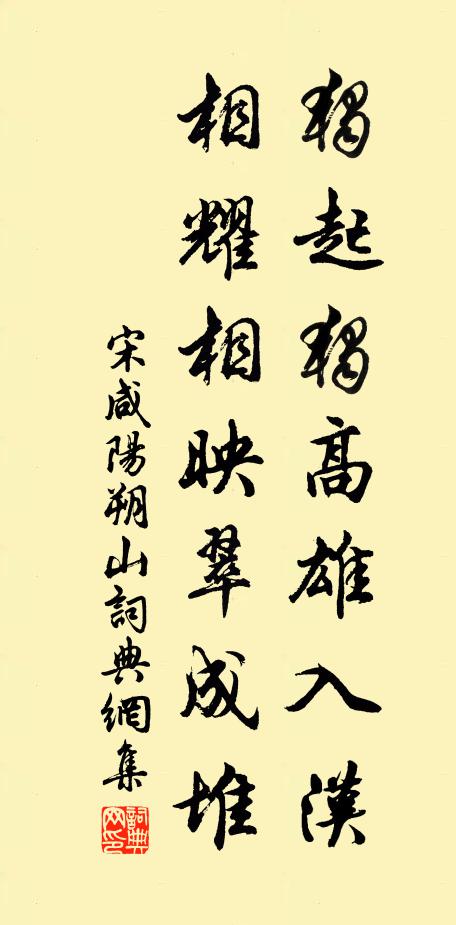 獨起獨高雄入漢
相耀相映翠成堆
宋咸陽朔山詞典網集
詞典網印